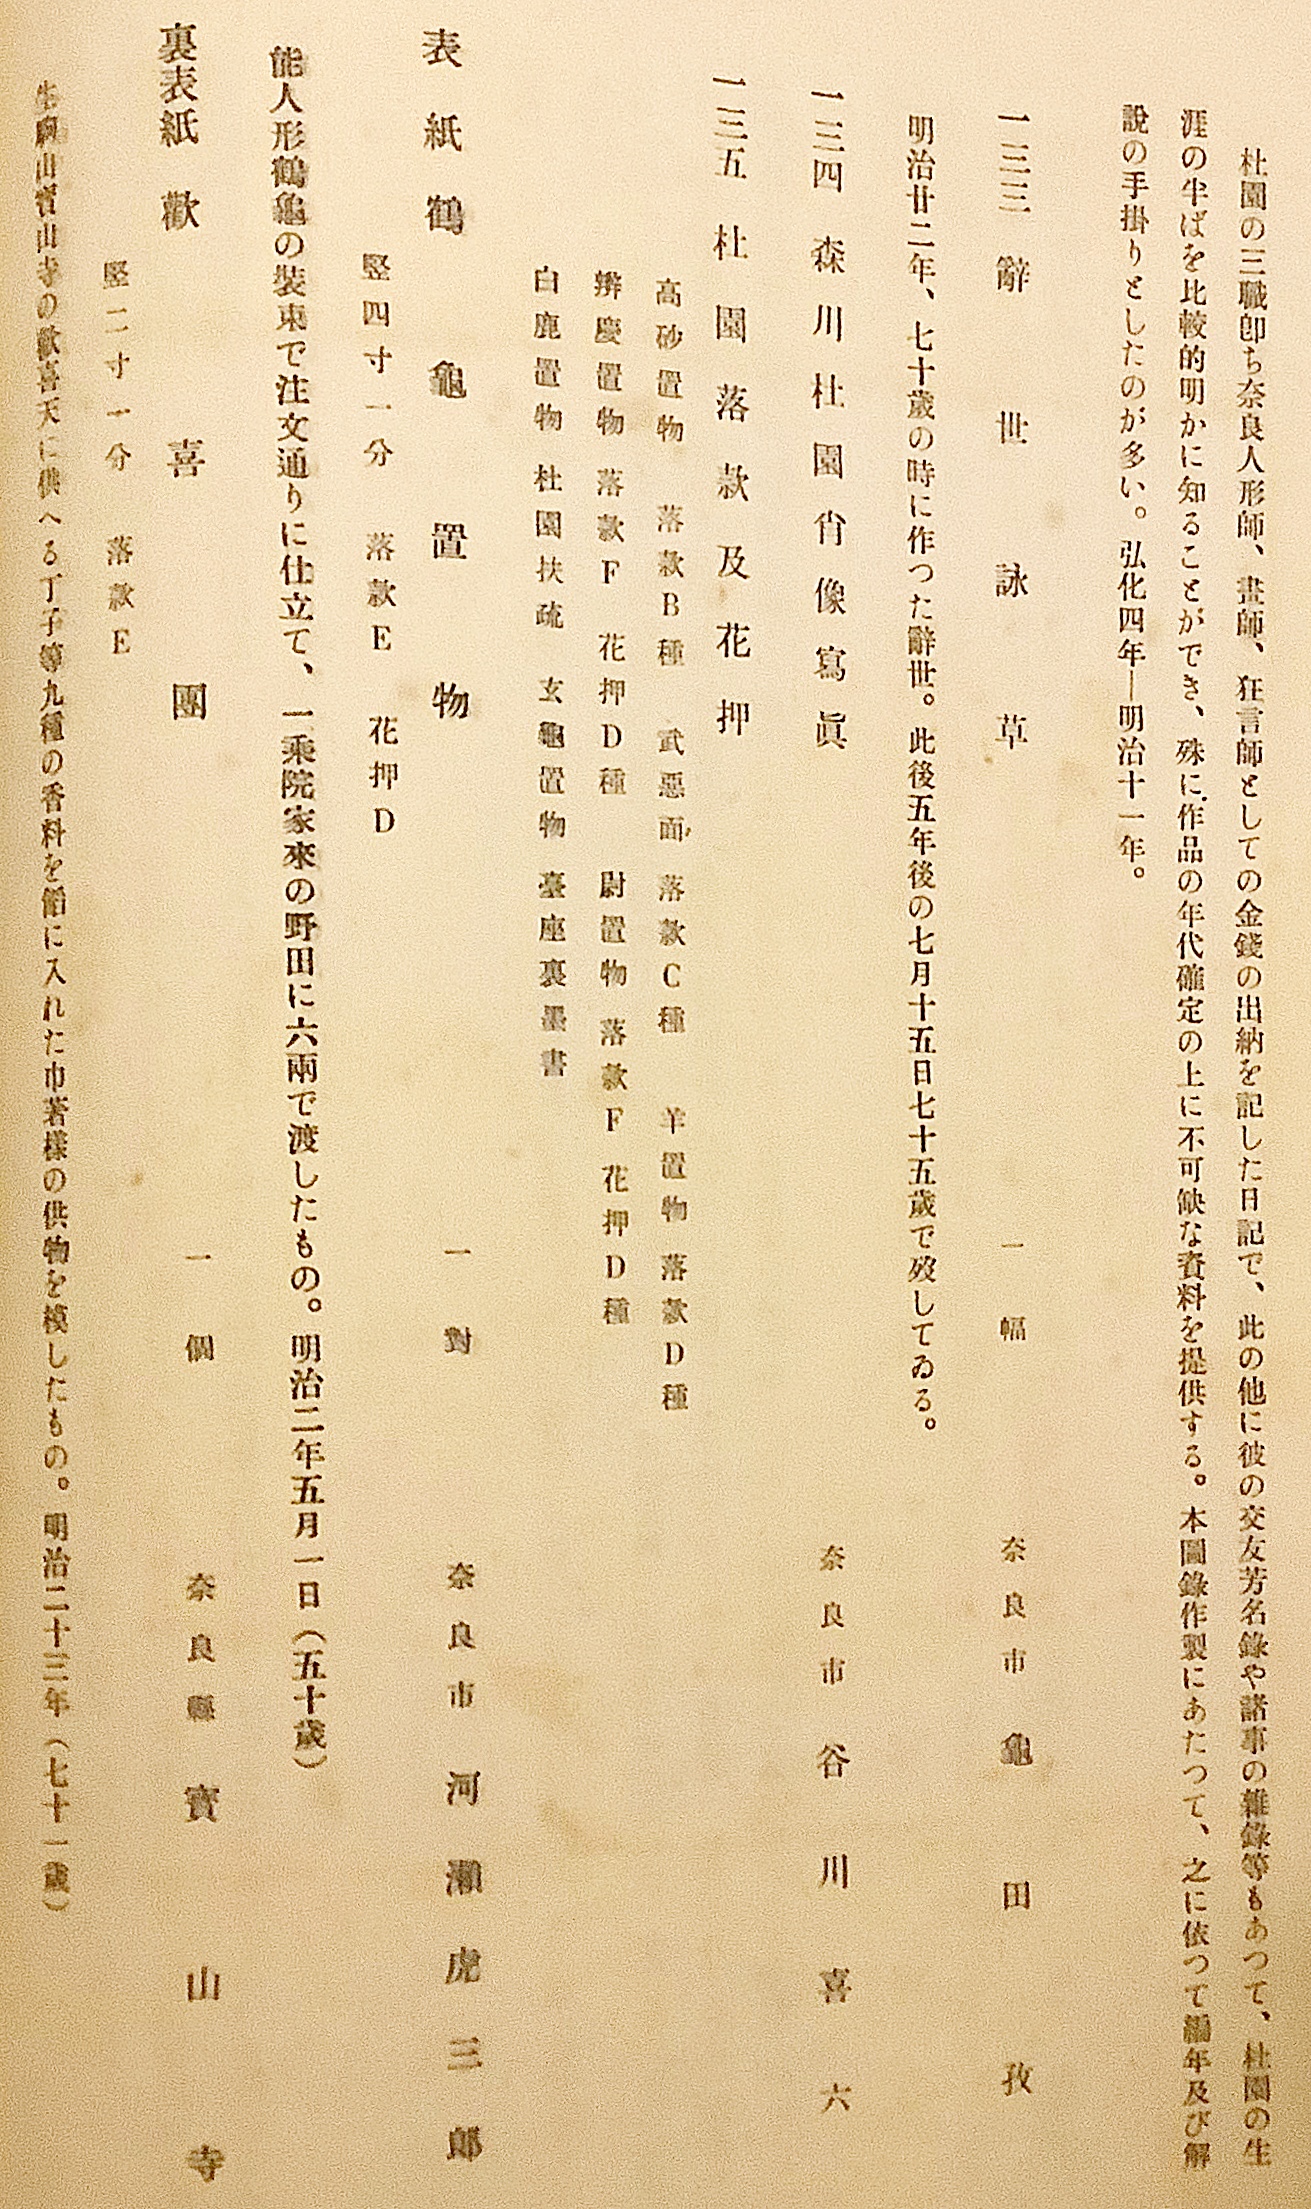 杜園の三職卽ち奈良人形師、畫師、狂言師としての金錢の出納を記した日記で、此の他に彼の交友芳名錄や諸事の雜錄等もあつて、杜園の生
涯の半ばを比較的明かに知ることができ、殊に作品の年代確定の上に不可缺な資料を提供する。本圖錄作製にあたつて、之に依つて編年及び解
說の手掛りとしたのが多い。弘化四年—明治十一年。
一三三 辭世詠草 一幅 奈良市 龜田孜
明治廿二年、七十歲の時に作つた辭世。此後五年後の七月十五日七十五歲で歿してゐる。
一三四 森川杜園肖像寫眞 奈良市 谷川喜六
一三五 杜園落款及花押
高砂置物 落款B種 武惡面 落款C種 羊置物 落款D種
辨慶置物 落款F 花押D種 尉置物 落款F 花押D種
白鹿置物 杜園扶疏 玄龜置物 臺座裏墨書
表紙 鶴龜置物 一對 奈良市 河瀨虎三郎
竪四寸一分 落款E 花押D
能人形鶴龜の裝束で注文通りに仕立て、一乘院家來の野田に六兩で渡したもの。明治二年五月一日（五十歲）
裏表紙 歡喜團 一個 奈良縣 寶山寺
竪二寸一分 落款E
生駒山寶山寺の歡喜天に供へる丁子等九種の香料を餡に入れた巾着樣の供物を模したもの。明治二十三年（七十一歲）